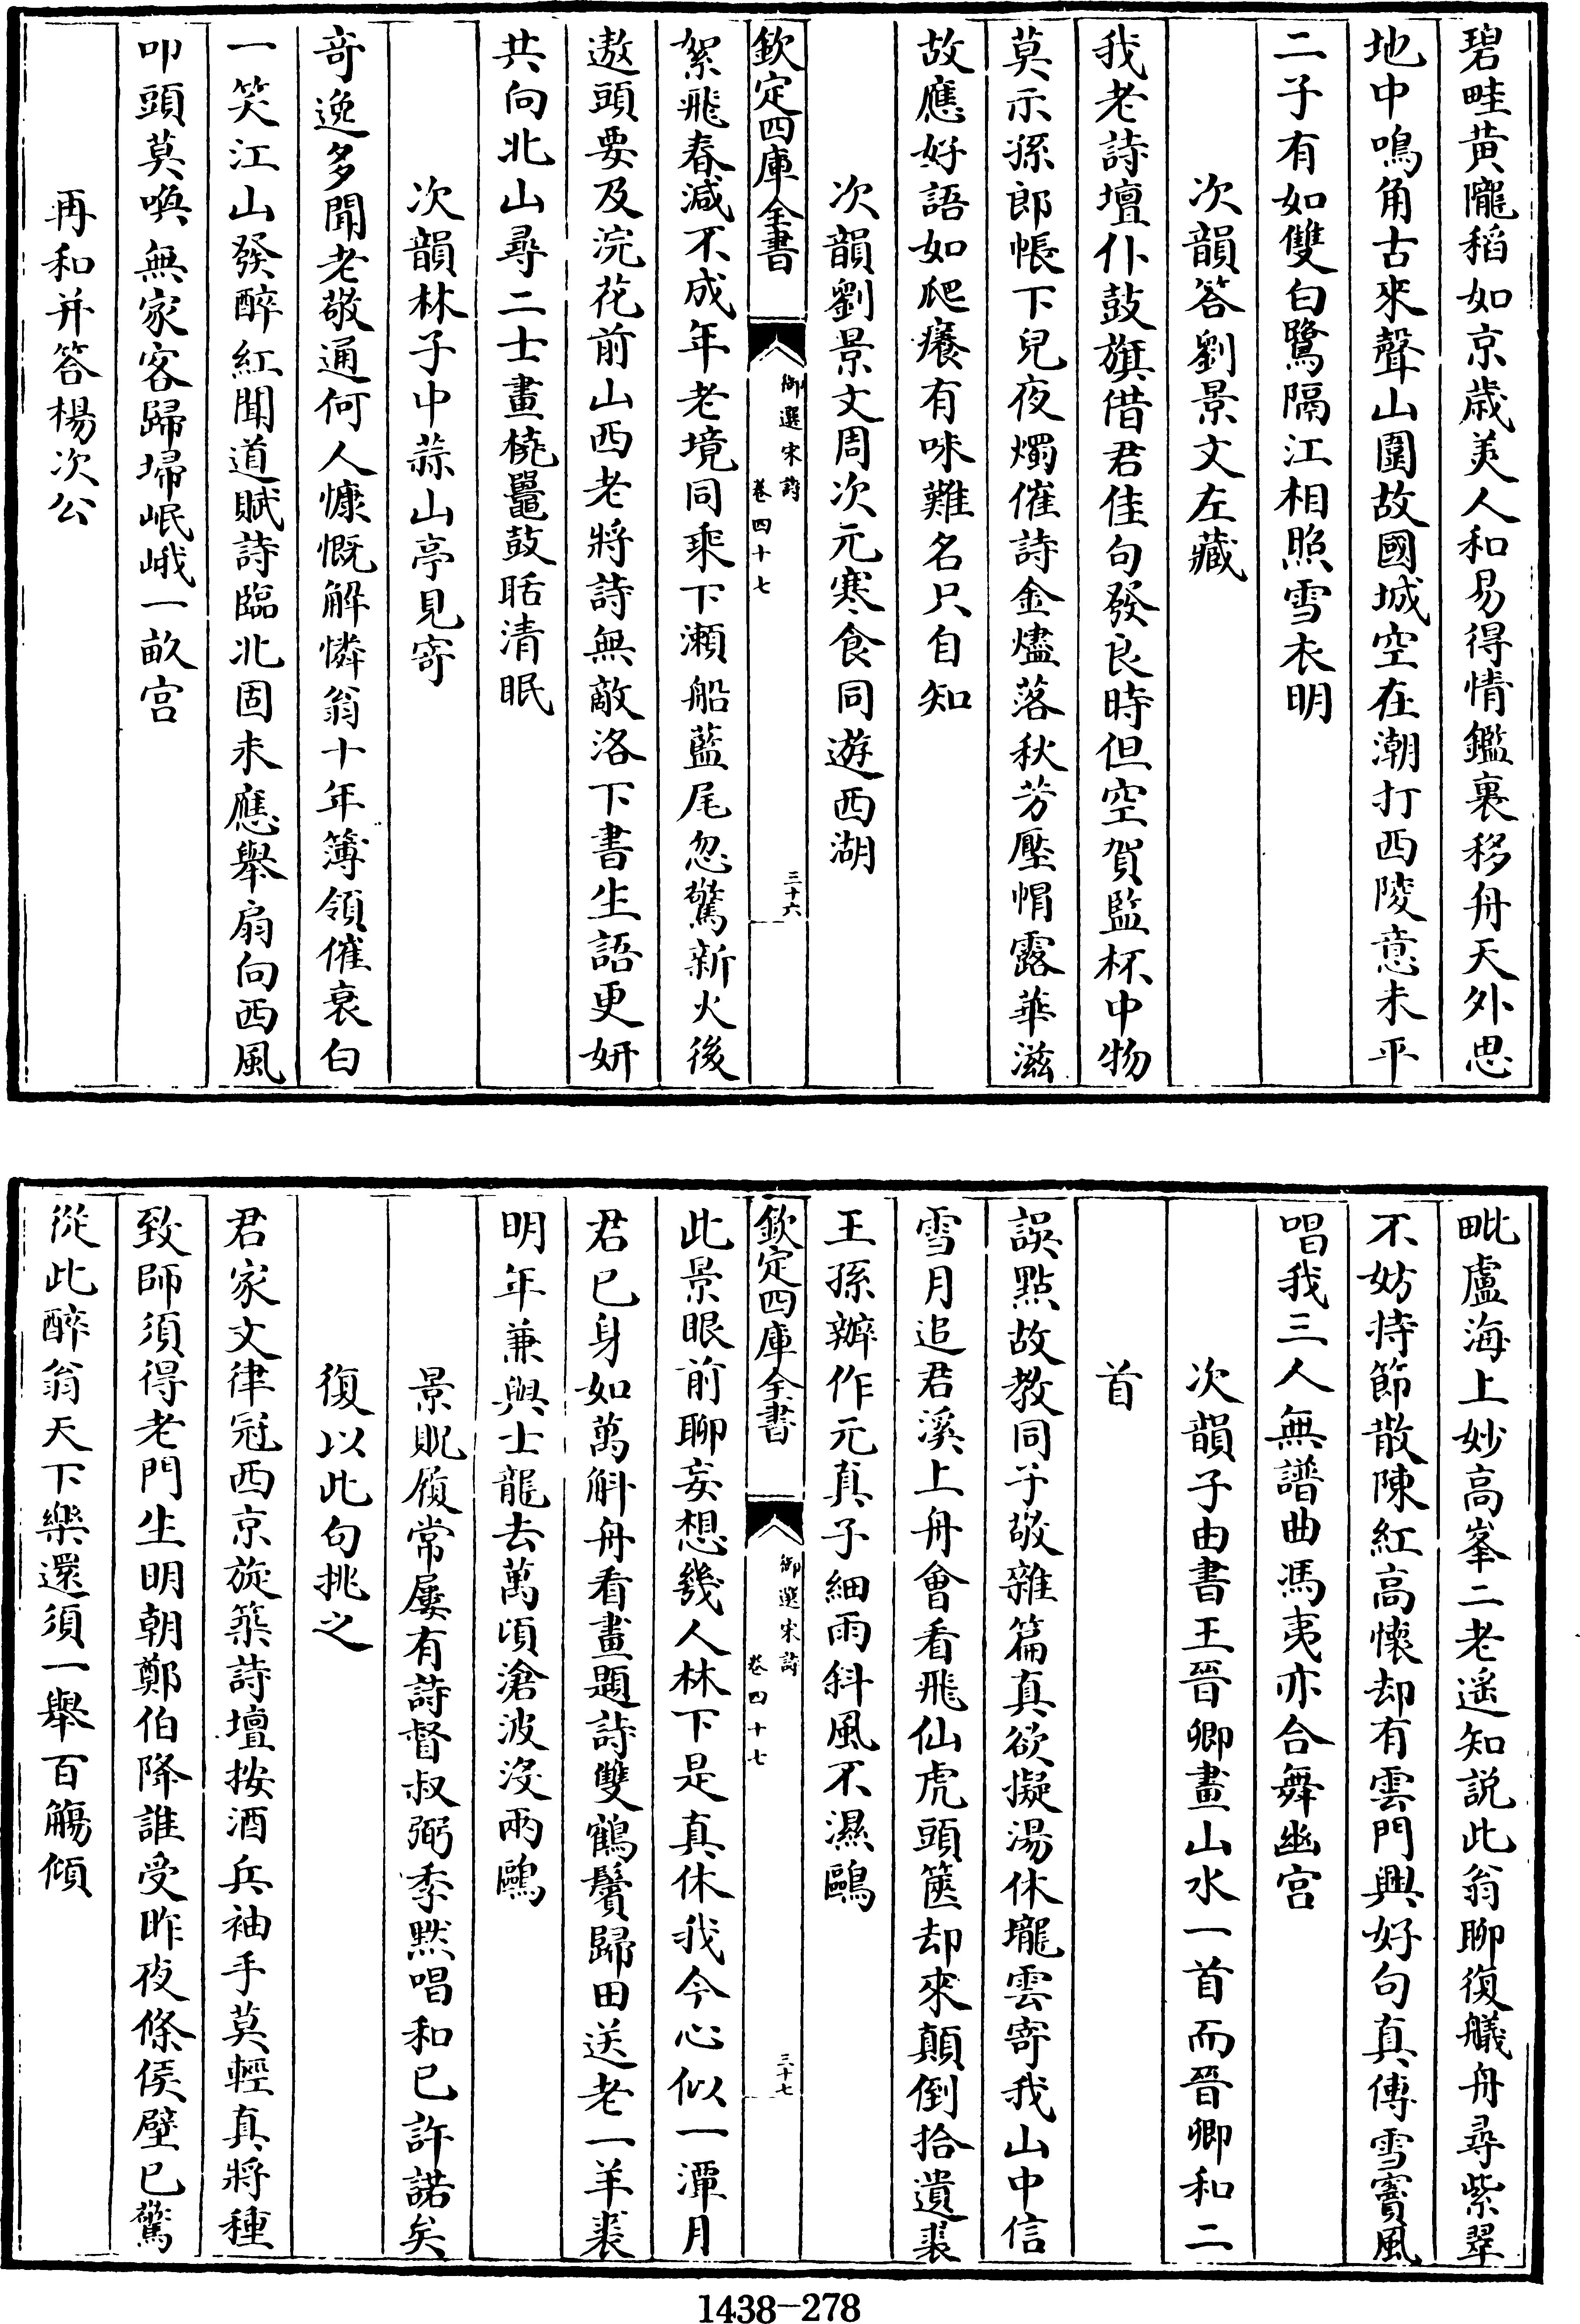 碧畦黃隴稻如京歲美人和易得情鑑裏移舟天外思
地中鳴角古來聲山圍故國城空在潮打西陵意未平
二子有如雙白鷺隔江相照雪衣明
次韻答劉景文左藏
我老詩壇仆鼓旗借君佳句發良時但空賀監杯中物
莫示孫郎帳下兒夜燭催詩金燼落秋芳壓帽露華滋
故應好語如爬癢有味難名只自知
次韻劉景文周次元寒食同遊西湖
欽定四庫全書
御選宋詩
卷四十七
三十六
絮飛春減不成年老境同乘下瀨船藍尾忽驚新火後
遨頭要及浣花前山西老將詩無敵洛下書生語更妍
共向北山尋二士畫橈鼉鼓聒清眠
次韻林子中蒜山亭見寄
奇逸多聞老敬通何人慷慨解憐翁十年簿領催衰白
一笑江山發醉紅聞道賦詩臨北固未應舉扇向西風
叩頭莫喚無家客歸埽岷峨一畝宮
再和并答楊次公
毗盧海上妙高峯二老遥知説此翁聊復艤舟尋紫翠
不妨持節散陳紅高懷却有雲門興好句真傳雪竇風
唱我三人無譜曲馮夷亦合舞幽宮
次韻子由書王晉卿畫山水一首而晉卿和二
首
誤點故教同子敬雜篇真欲擬湯休壠雲寄我山中信
雪月追君溪上舟會看飛仙虎頭篋却來顛倒拾遺裘
王孫辦作元真子細雨斜風不濕鷗
欽定四庫全書
御選宋詩
卷四十七
三十七
此景眼前聊妄想幾人林下是真休我今心似一潭月
君已身如萬斛舟看畫題詩雙鶴鬢歸田送老一羊裘
明年兼與士龍去萬頃滄波沒兩鷗
景貺履常屢有詩督叔弼季默唱和已許諾矣
復以此句挑之
君家文律冠西京旋築詩壇按酒兵袖手莫輕真將種
致師須得老門生明朝鄭伯降誰受昨夜條侯壁已驚
從此醉翁天下樂還須一舉百觴傾
1438-278